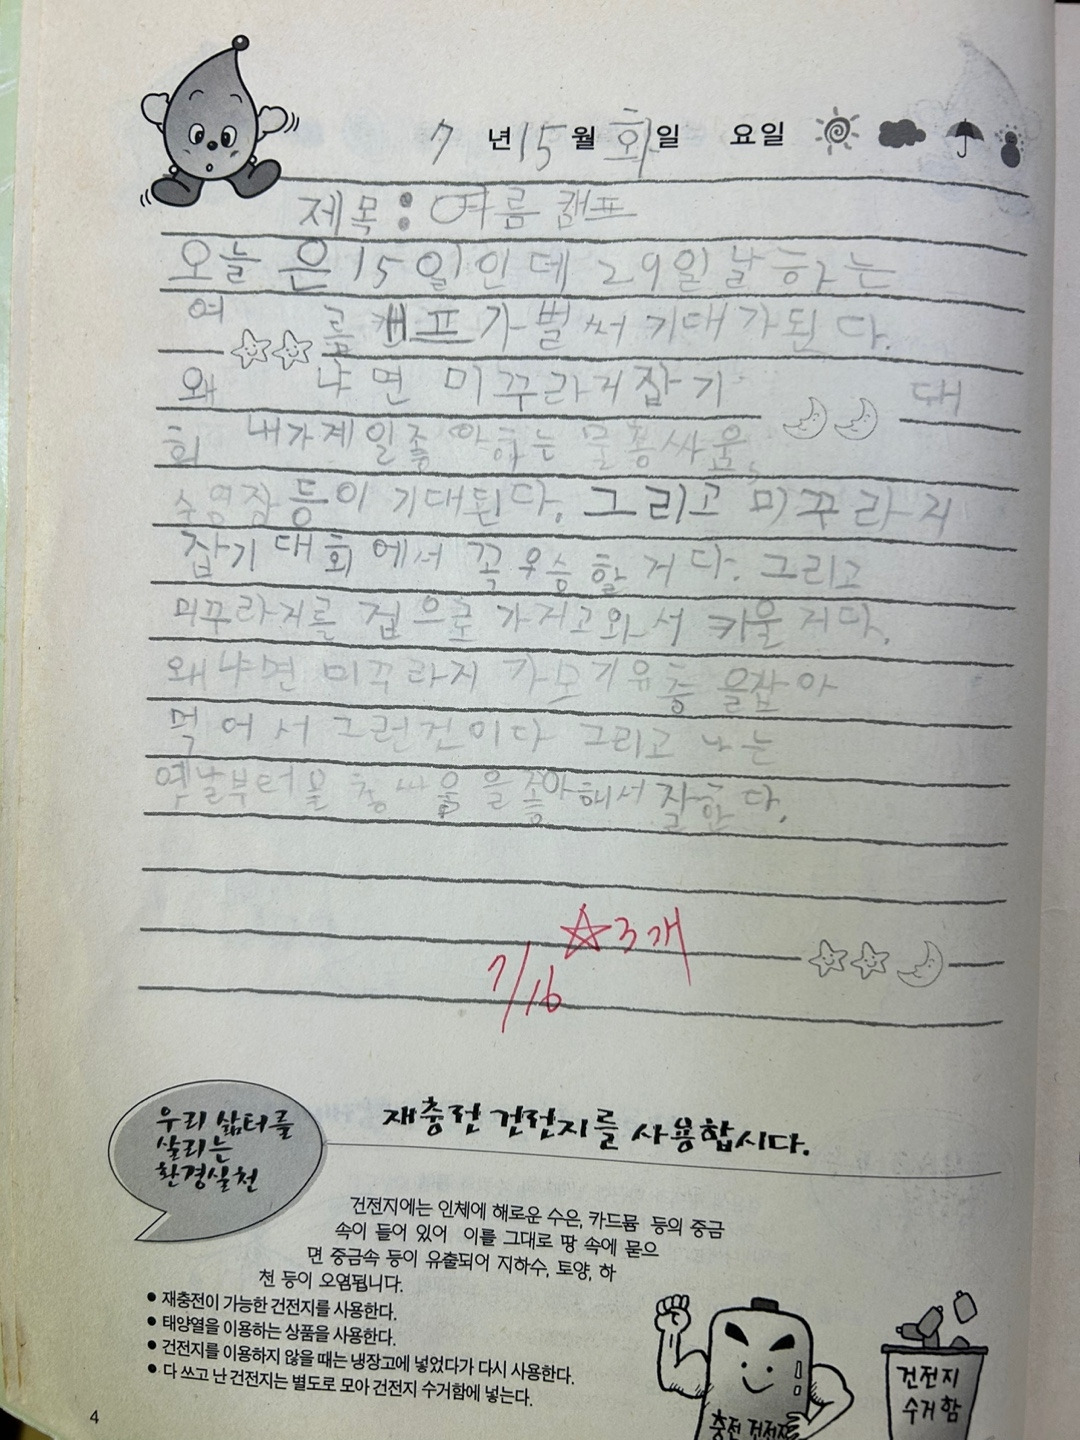 7 년 15 월 화 일 요일
제목 : 여름 캠프
오늘 은 15일인데 29일날 하는
여 름 캠프가 벌써 기대가된다.
왜 냐면 미꾸라지잡기 대
회 내가게일좋아하는 물총싸움,
수영장등이 기대된다. 그리고 미꾸라지
잡기 대회에서 꼭 우승할거다. 그리고
미꾸라지를 집으로 가저고와서 키울거다.
왜냐면 미꾸라지 가모기유충을잡아
먹어서 그런건이다 그리고 나는
옛날부터물총싸움을좋아해서 잘한다.
☆3개
7/16
우리 삶터를
살리는
환경실천
재충전 건전지를 사용합시다.
건전지에는 인체에 해로운 수은, 카드뮴 등의 중금
속이 들어 있어 이를 그대로 땅 속에 묻으
면 중금속 등이 유출되어 지하수, 토양, 하
천 등이 오염됩니다.
• 재충전이 가능한 건전지를 사용한다.
• 태양열을 이용하는 상품을 사용한다.
• 건전지를 이용하지 않을 때는 냉장고에 넣었다가 다시 사용한다.
• 다 쓰고 난 건전지는 별도로 모아 건전지 수거함에 넣는다.
충전 건전지
건전지
수거함
4